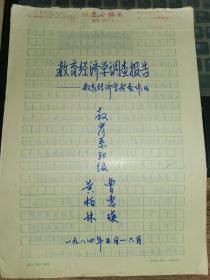 教育经济学调查报告
——教育经济学考查作业
教育系81级
黄柏林
曹
一九八四年五月—六月